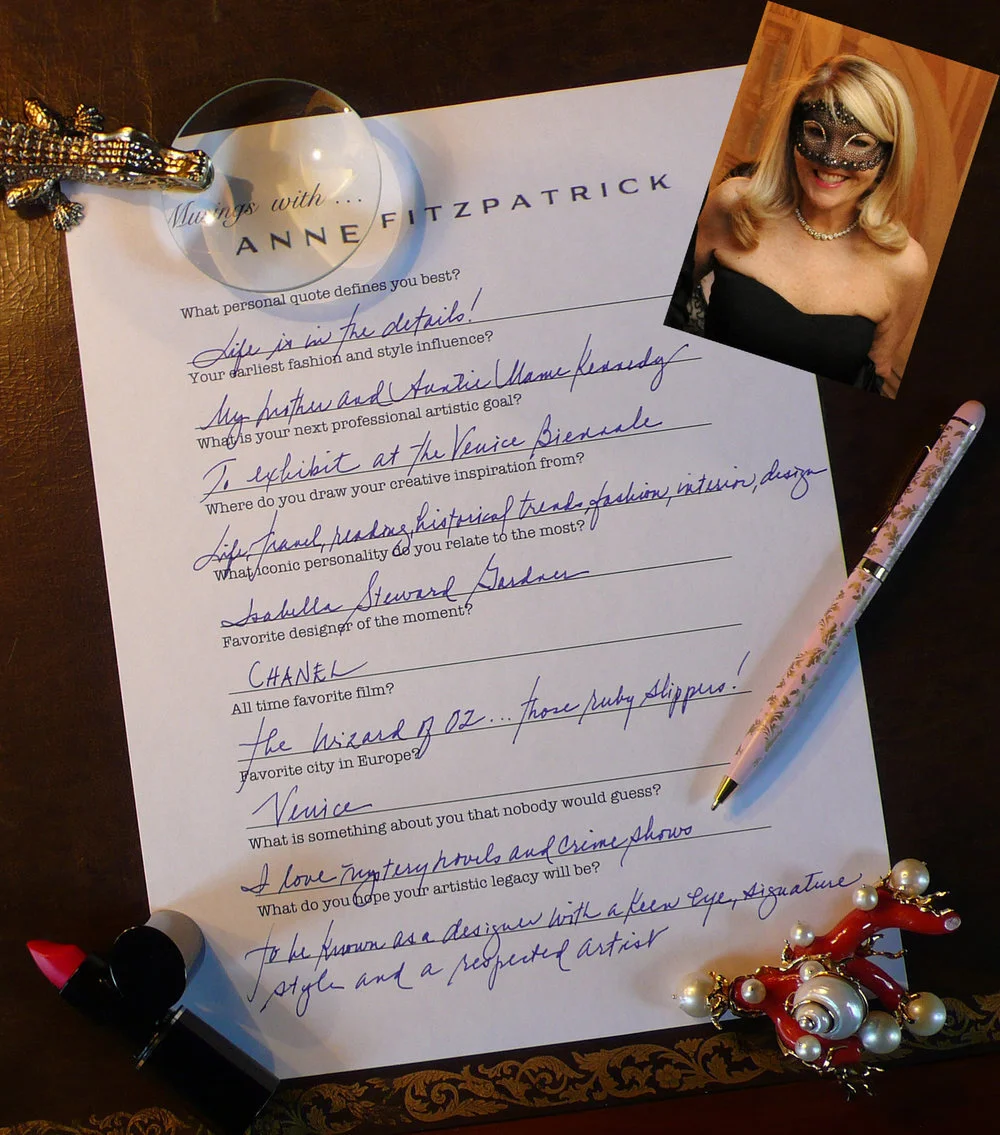 Musings with ...
ANNE FITZPATRICK
What personal quote defines you best?
Life is in the details!
Your earliest fashion and style influence?
My mother and Auntie Mame Kennedy
What is your next professional artistic goal?
To exhibit at the Venice Biennale
Where do you draw your creative inspiration from?
Life, travel, reading, historical trends, fashion, interior, design
What iconic personality do you relate to the most?
Isabella Steward Gardner
Favorite designer of the moment?
CHANEL
All time favorite film?
the Wizard of OZ... those ruby slippers!
Favorite city in Europe?
Venice
What is something about you that nobody would guess?
I love mystery novels and Crime shows
What do you hope your artistic legacy will be?
To be known as a designer with a keen eye, signature
style and a respected artist